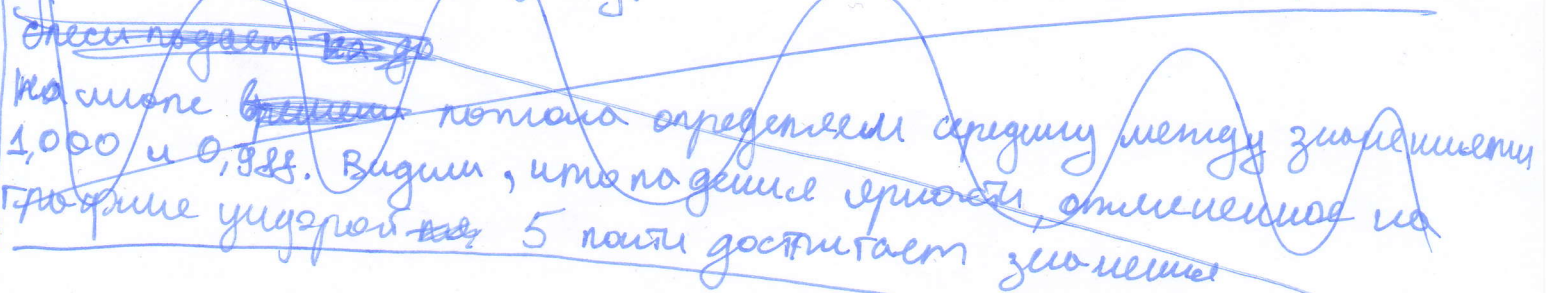 блеси подает на до
На шкале времени потока определяем середину между значениями
1,000 и 0,988. Видим, что падения яркости, отмеченное на
графике цифрой 5 почти достигает значения